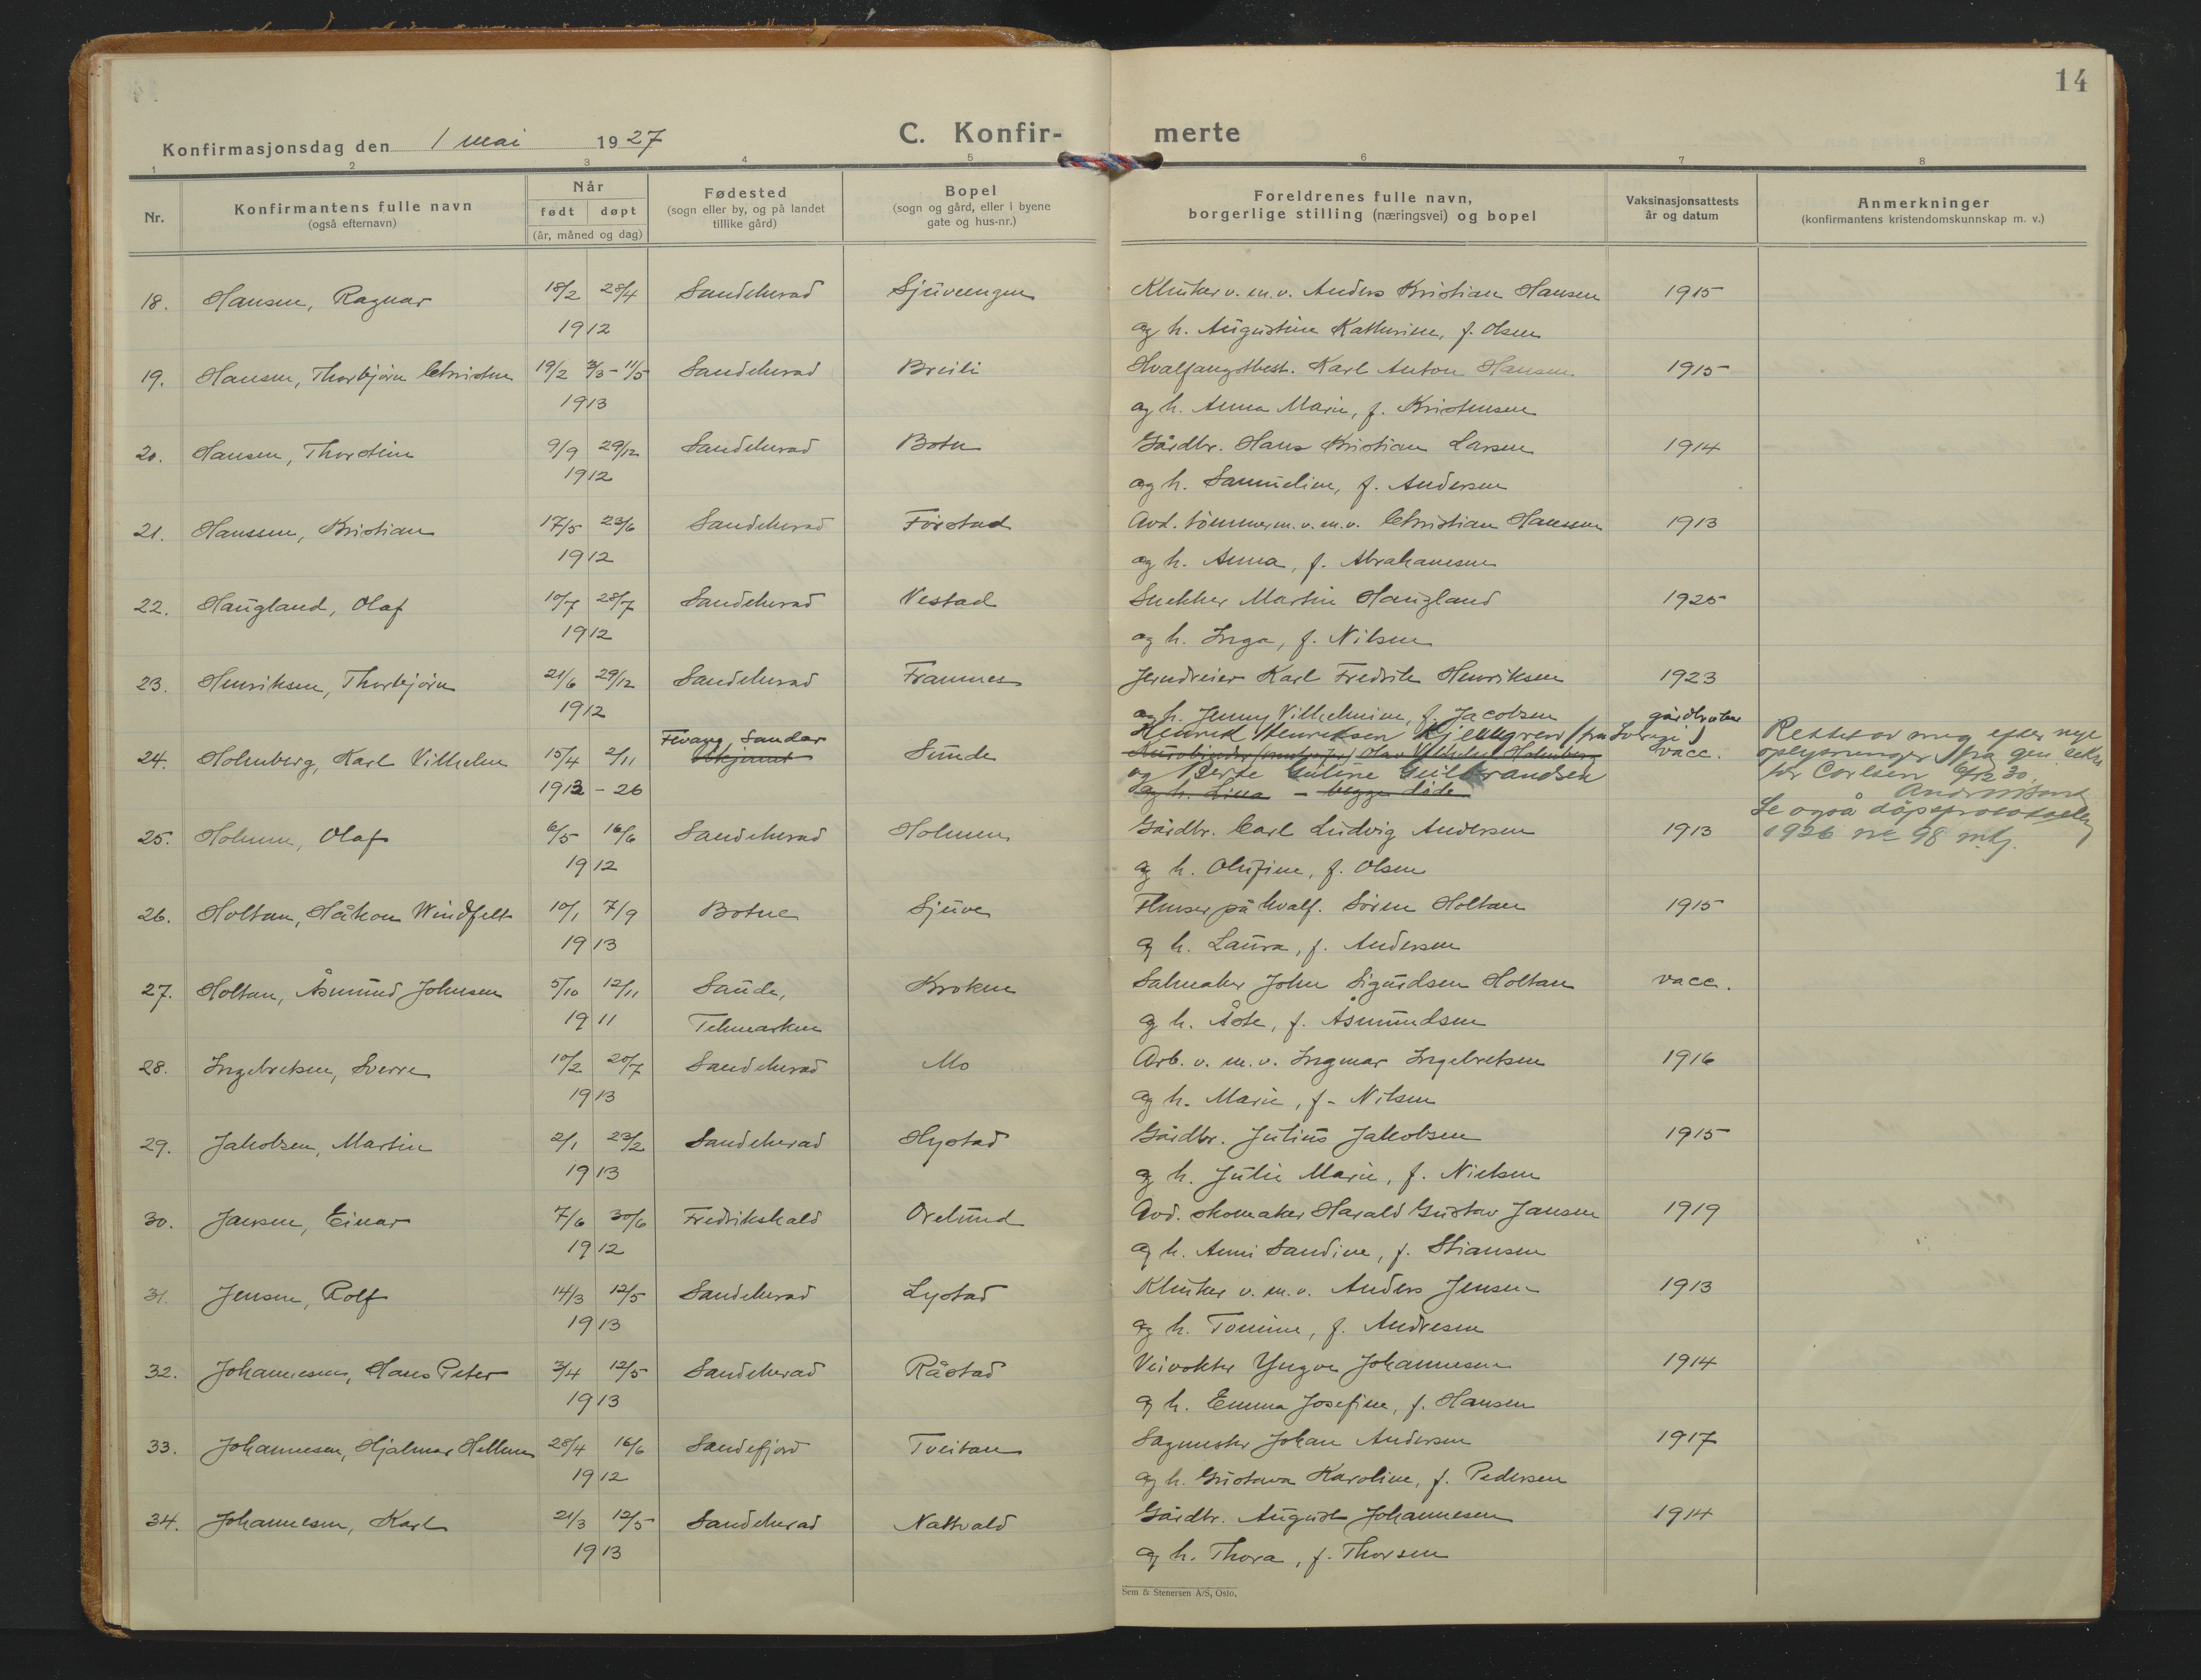 14
Konfirmasjonsdag den 1 mai 1927
C. Konfir- merte
1 2 3 4 5 6 7 8
Nr.
Konfirmantens fulle navn
(også efternavn)
Når
født døpt
(år, måned og dag)
Fødested
(sogn eller by, og på landet
tillike gård)
Bopel
(sogn og gård, eller i byene
gate og hus-nr.)
Foreldrenes fulle navn,
borgerlige stilling (næringsvei) og bopel
Vaksinasjonsattests
år og datum
Anmerkninger
(konfirmantens kristendomskunnskap m. v.)
18. Hansen, Ragnar 18/2 28/4 Sandeherad Sjuvengen Klinker v. m. v. Anders Kristian Hansen 1915
1912 og h. Augustine Kathrine, f. Olsen
19. Hansen, Thorbjørn Christen 19/2 - 11/5 Sandeherad Breili Hvalfangstbest. Karl Anton Hansen 1915
1913 og h. Anna Marie, f. Kristensen
20. Hansen, Thorstein 9/9 29/12 Sandeherad Botn Gårdbr. Hans Kristian Larsen 1914
1912 og h. Samueline, f. Andersen
21. Hanssen, Kristian 17/5 23/6 Sandeherad Forstad Avd. tømmerm. v. m. v. Christian Hanssen 1913
1912 og h. Anna, f. Abrahamsen
22. Haugland, Olaf 10/7 28/7 Sandeherad Vestad Snekker Martin Haugland 1925
1912 og h. Inga, f. Nilsen
23. Henriksen, Thorbjørn 21/6 29/12 Sandeherad Framnes Jerndreier Karl Fredrik Henriksen 1923
1912 og h. Jenny Vilhelmine, f. Jacobsen
24. Holmberg, Karl Vilhelm 15/4 2/11 Fevang, Sandar Sunde Henrik Henriksen Kjellgren (fra Sverige) gårdbruker vacc.
Ukjent Olav Vilhelm Holmberg
1912 - 26 og Berte Guline Gulbrandsen
og h. Lina - begge døde
Rettet av mig efter nye
oplysninger fra gen. sekr.
for Carlsen 6/12 30.
Se også dåpsprotokollen
1926 nr 98 mkj.
25. Holmen, Olaf 6/5 16/6 Sandeherad Holmen Gårdbr. Carl Ludvig Andersen 1913
1912 og h. Olufine, f. Olsen
26. Holtan, Håkon Windfelt 10/1 7/9 Botne Sjuve Flenser på hvalf. Søren Holtan 1915
1913 og h. Laura, f. Andersen
27. Holtan, Åsmund Johnsen 5/10 12/11 Saude, Kroken Salmaker John Sigurdsen Holtan vacc.
1911 Telemarken og h. Åste, f. Åsmundsen
28. Ingebretsen, Sverre 10/2 20/7 Sandeherad Mo Arb. v. m. v. Ingmar Ingebretsen 1916
1913 og h. Marie, f. Nilsen
29. Jakobsen, Martin 2/1 23/2 Sandeherad Hystad Gårdbr. Julius Jakobsen 1915
1913 og h. Julie Marie, f. Nielsen
30. Jansen, Einar 7/6 30/6 Fredrikshald Orelund Avd. skomaker Harald Gustav Jansen 1919
1912 og h. Anni Sandine, f. Stiansen
31. Jensen, Rolf 14/3 12/5 Sandeherad Lystad Klinker v. m. v. Anders Jensen 1913
1913 og h. Tomine, f. Andresen
32. Johannesen, Hans Peter 3/4 12/5 Sandeherad Råstad Veivokter Yngve Johannesen 1914
1913 og h. Emma Josefine, f. Hansen
33. Johannesen, Hjalmar Hellem 28/4 16/6 Sandefjord Tveitan Sagmester Johan Andersen 1917
1912 og h. Gustava Karoline, f. Pedersen
34. Johannesen, Karl 21/3 12/5 Sandeherad Nattvald Gårdbr. August Johannesen 1914
1913 og h. Thora, f. Thorsen
Sem & Stenersen A/S, Oslo.